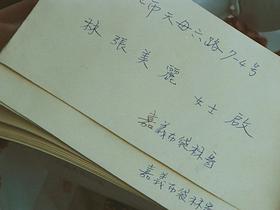 市天母六路7-4号
林張美麗
女士啟
嘉義布袋林寄
嘉義布袋林寄